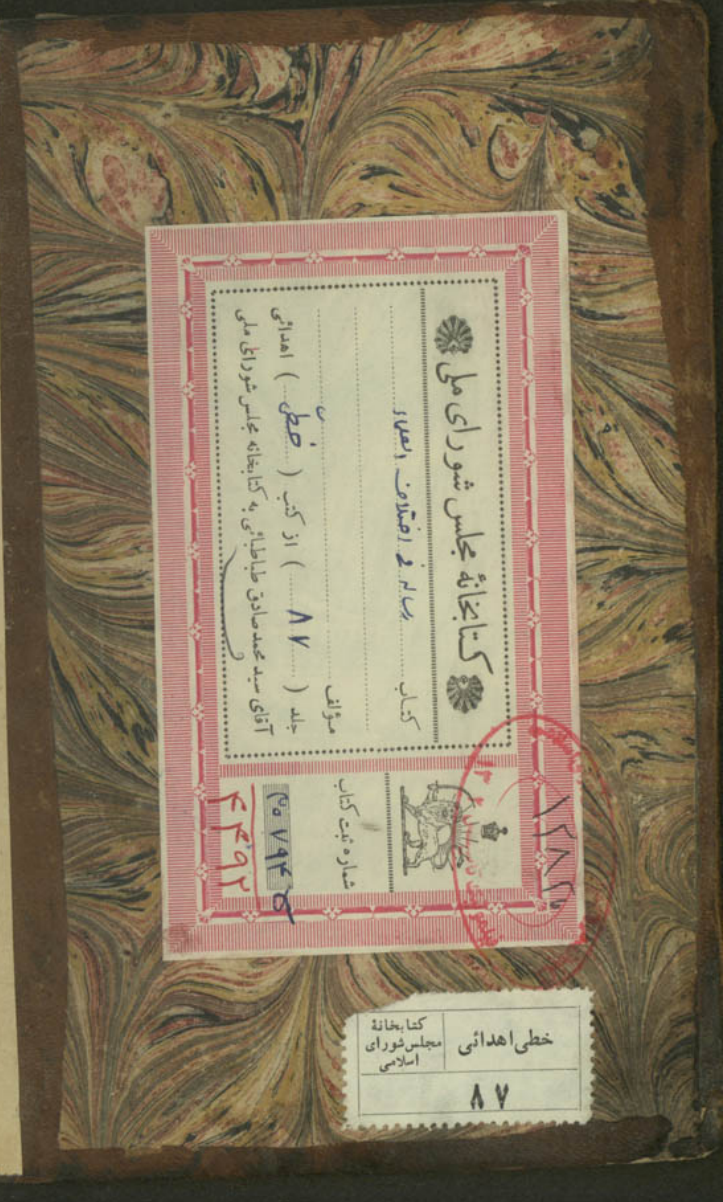 کتابخانهٔ مجلس شورای ملی
کتاب رساله فی اختلاف العلماء
مؤلف
جلد ( ۸۷ ) از کتب ( خطی ) اهدائی
آقای سید محمد صادق طباطبائی به کتابخانه مجلس شورای ملی
شماره ثبت کتاب
۲۰۷۹۴
۴۴۹۲
خطی اهدائی
کتابخانهٔ
مجلس شورای
اسلامی
۸۷